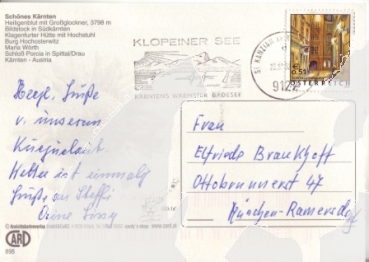 Schönes Kärnten
Heiligenblut mit Großglockner, 3798 m
Bildstock in Südkärnten
Klagenfurter Hütte mit Hochstuhl
Burg Hochosterwitz
Maria Wörth
Schloß Porcia in Spittal/Drau
Kärnten - Austria
KLOPEINER SEE
KÄRNTENS WÄRMSTER BADESEE
ST. KANZIAN AM
912
0.55
ÖSTERREICH
Herzl. Grüße
v. unserem
Kurzurlaub
Wetter ist einmalig
Grüße an Steffi
Frau
Elfriede Brauckhoff
Ottobrunnerst 47
München-Ramersdorf
CARD